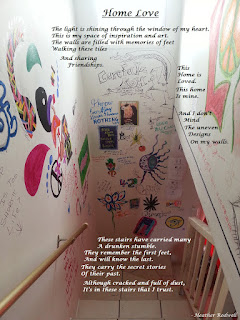 Home Love
The light is shining through the window of my heart.
This is my space of inspiration and art.
The walls are filled with memories of feet
Walking these tiles
And sharing
Friendships.
This
Home is
Loved.
This home
Is mine.
And I don't
Mind
The uneven
Designs
On my walls.
NOTHING
These stairs have carried many
A drunken stumble.
They remember the first feet,
And will know the last.
They carry the secret stories
Of their past.
Although cracked and full of dust,
It's in these stairs that I trust.
- Heather Rodwell